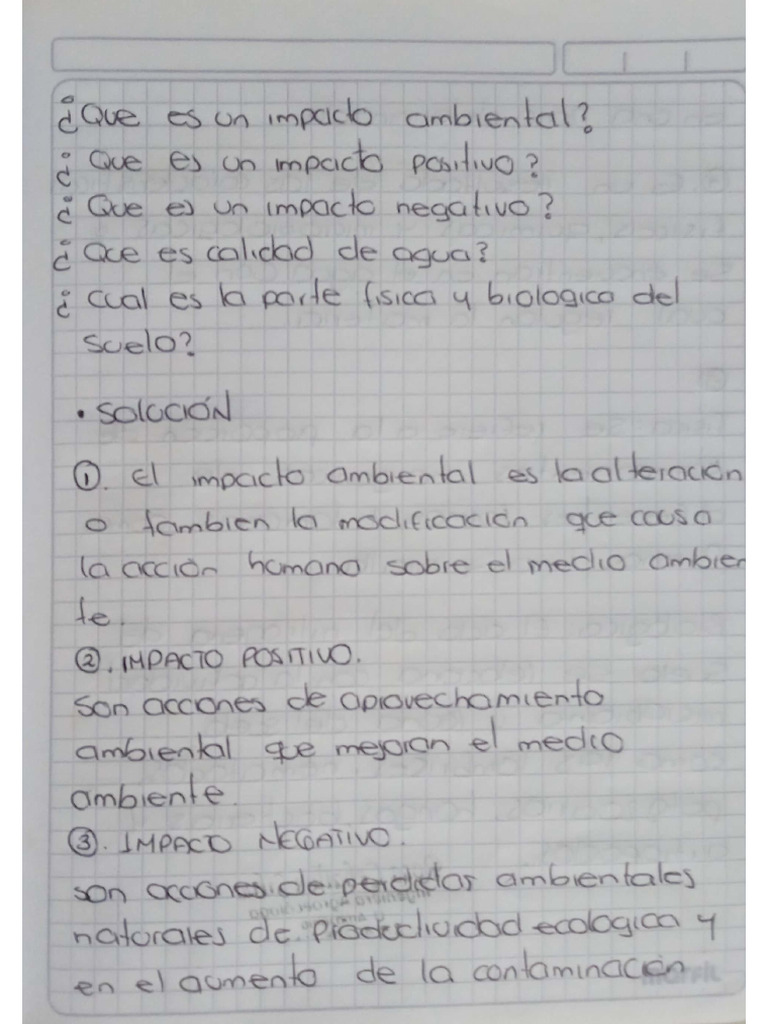 ¿Que es un impacto ambiental?
¿Que es un impacto positivo?
¿Que es un impacto negativo?
¿Que es calidad de agua?
¿cual es la parte fisica y biologica del
suelo?
• SOLUCIÓN
①. El impacto ambiental es la alteración
o tambien la modificación que causa
la acción humana sobre el medio ambien
te.
②. IMPACTO POSITIVO.
son acciones de aprovechamiento
ambiental que mejoran el medio
ambiente.
③. IMPACTO NEGATIVO.
son acciones de perdidas ambientales
naturales de productividad ecologica y
en el aumento de la contaminación